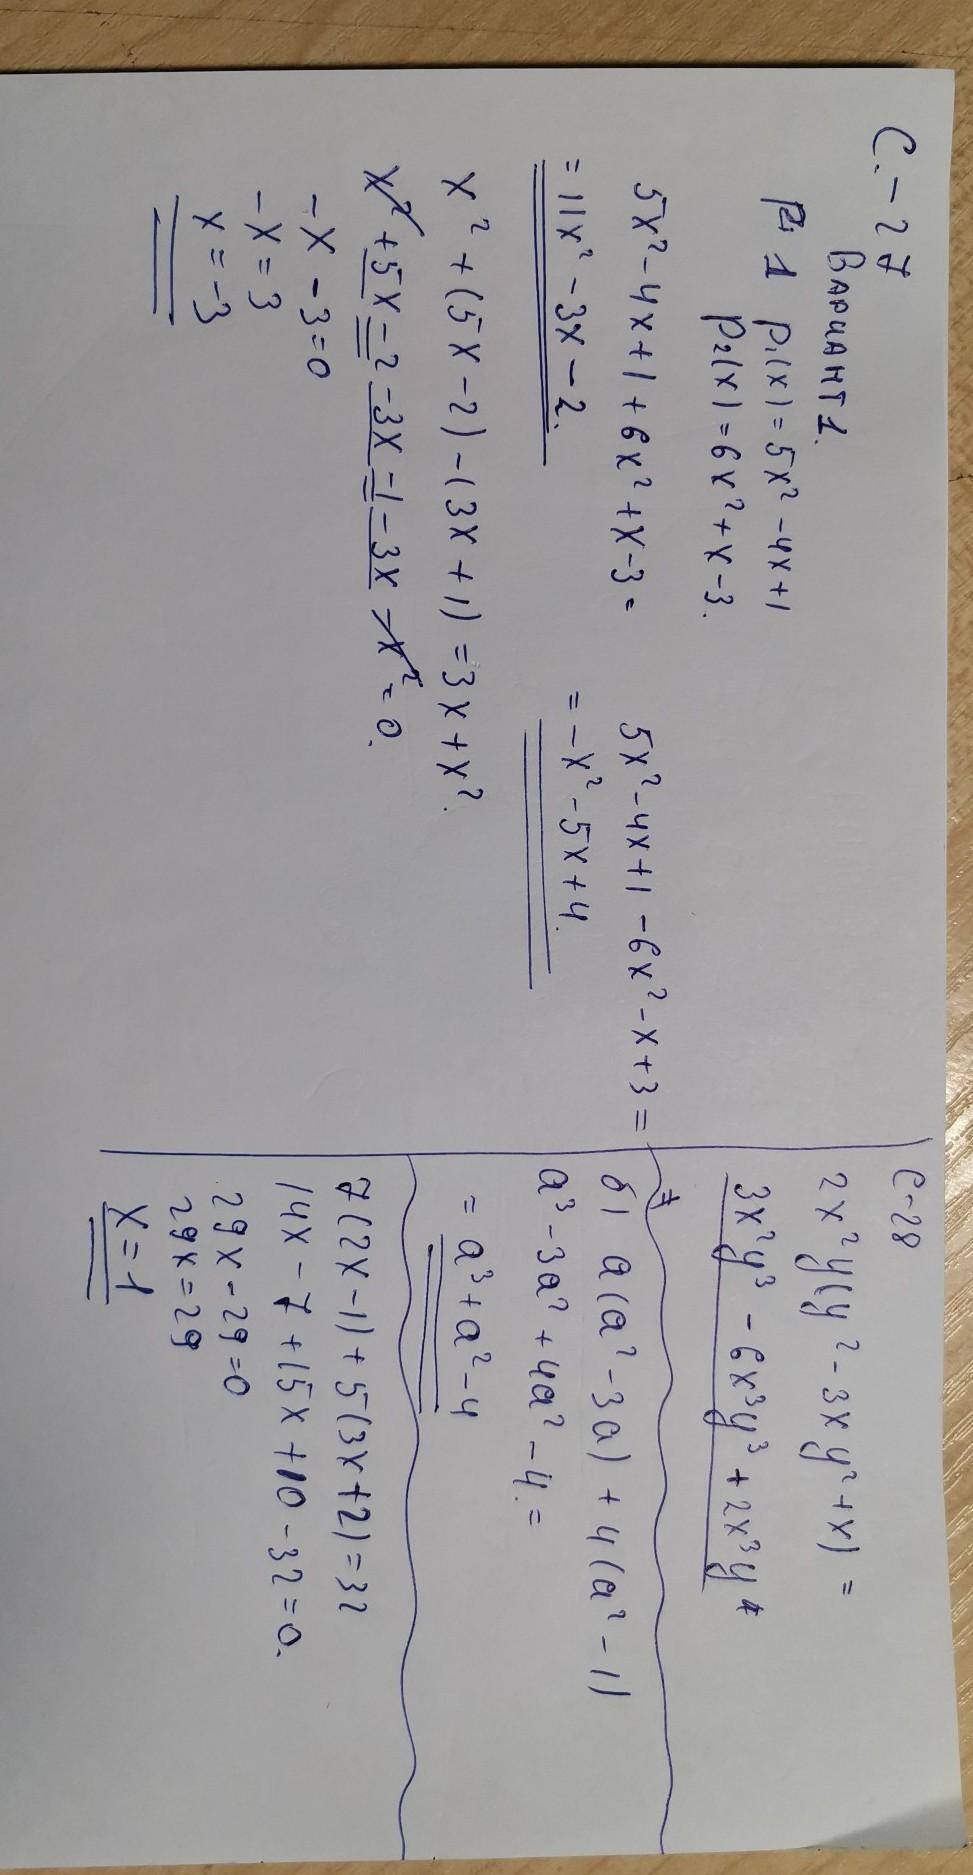 С-27
Вариант 1.
№ 1 P₁(x) = 5x² - 4x + 1
P₂(x) = 6x² + x - 3.
5x² - 4x + 1 + 6x² + x - 3 =
= 11x² - 3x - 2.
5x² - 4x + 1 - 6x² - x + 3 =
= -x² - 5x + 4.
x² + (5x - 2) - (3x + 1) = 3x + x².
x² + 5x - 2 - 3x - 1 - 3x - x² = 0.
-x - 3 = 0
-x = 3
x = -3
С-28
2x²y(y² - 3xy² + x) =
3x²y³ - 6x³y³ + 2x³y
б) a(a² - 3a) + 4(a² - 1)
a³ - 3a² + 4a² - 4 =
= a³ + a² - 4
7(2x - 1) + 5(3x + 2) = 32
14x - 7 + 15x + 10 - 32 = 0.
29x - 29 = 0
29x = 29
x = 1